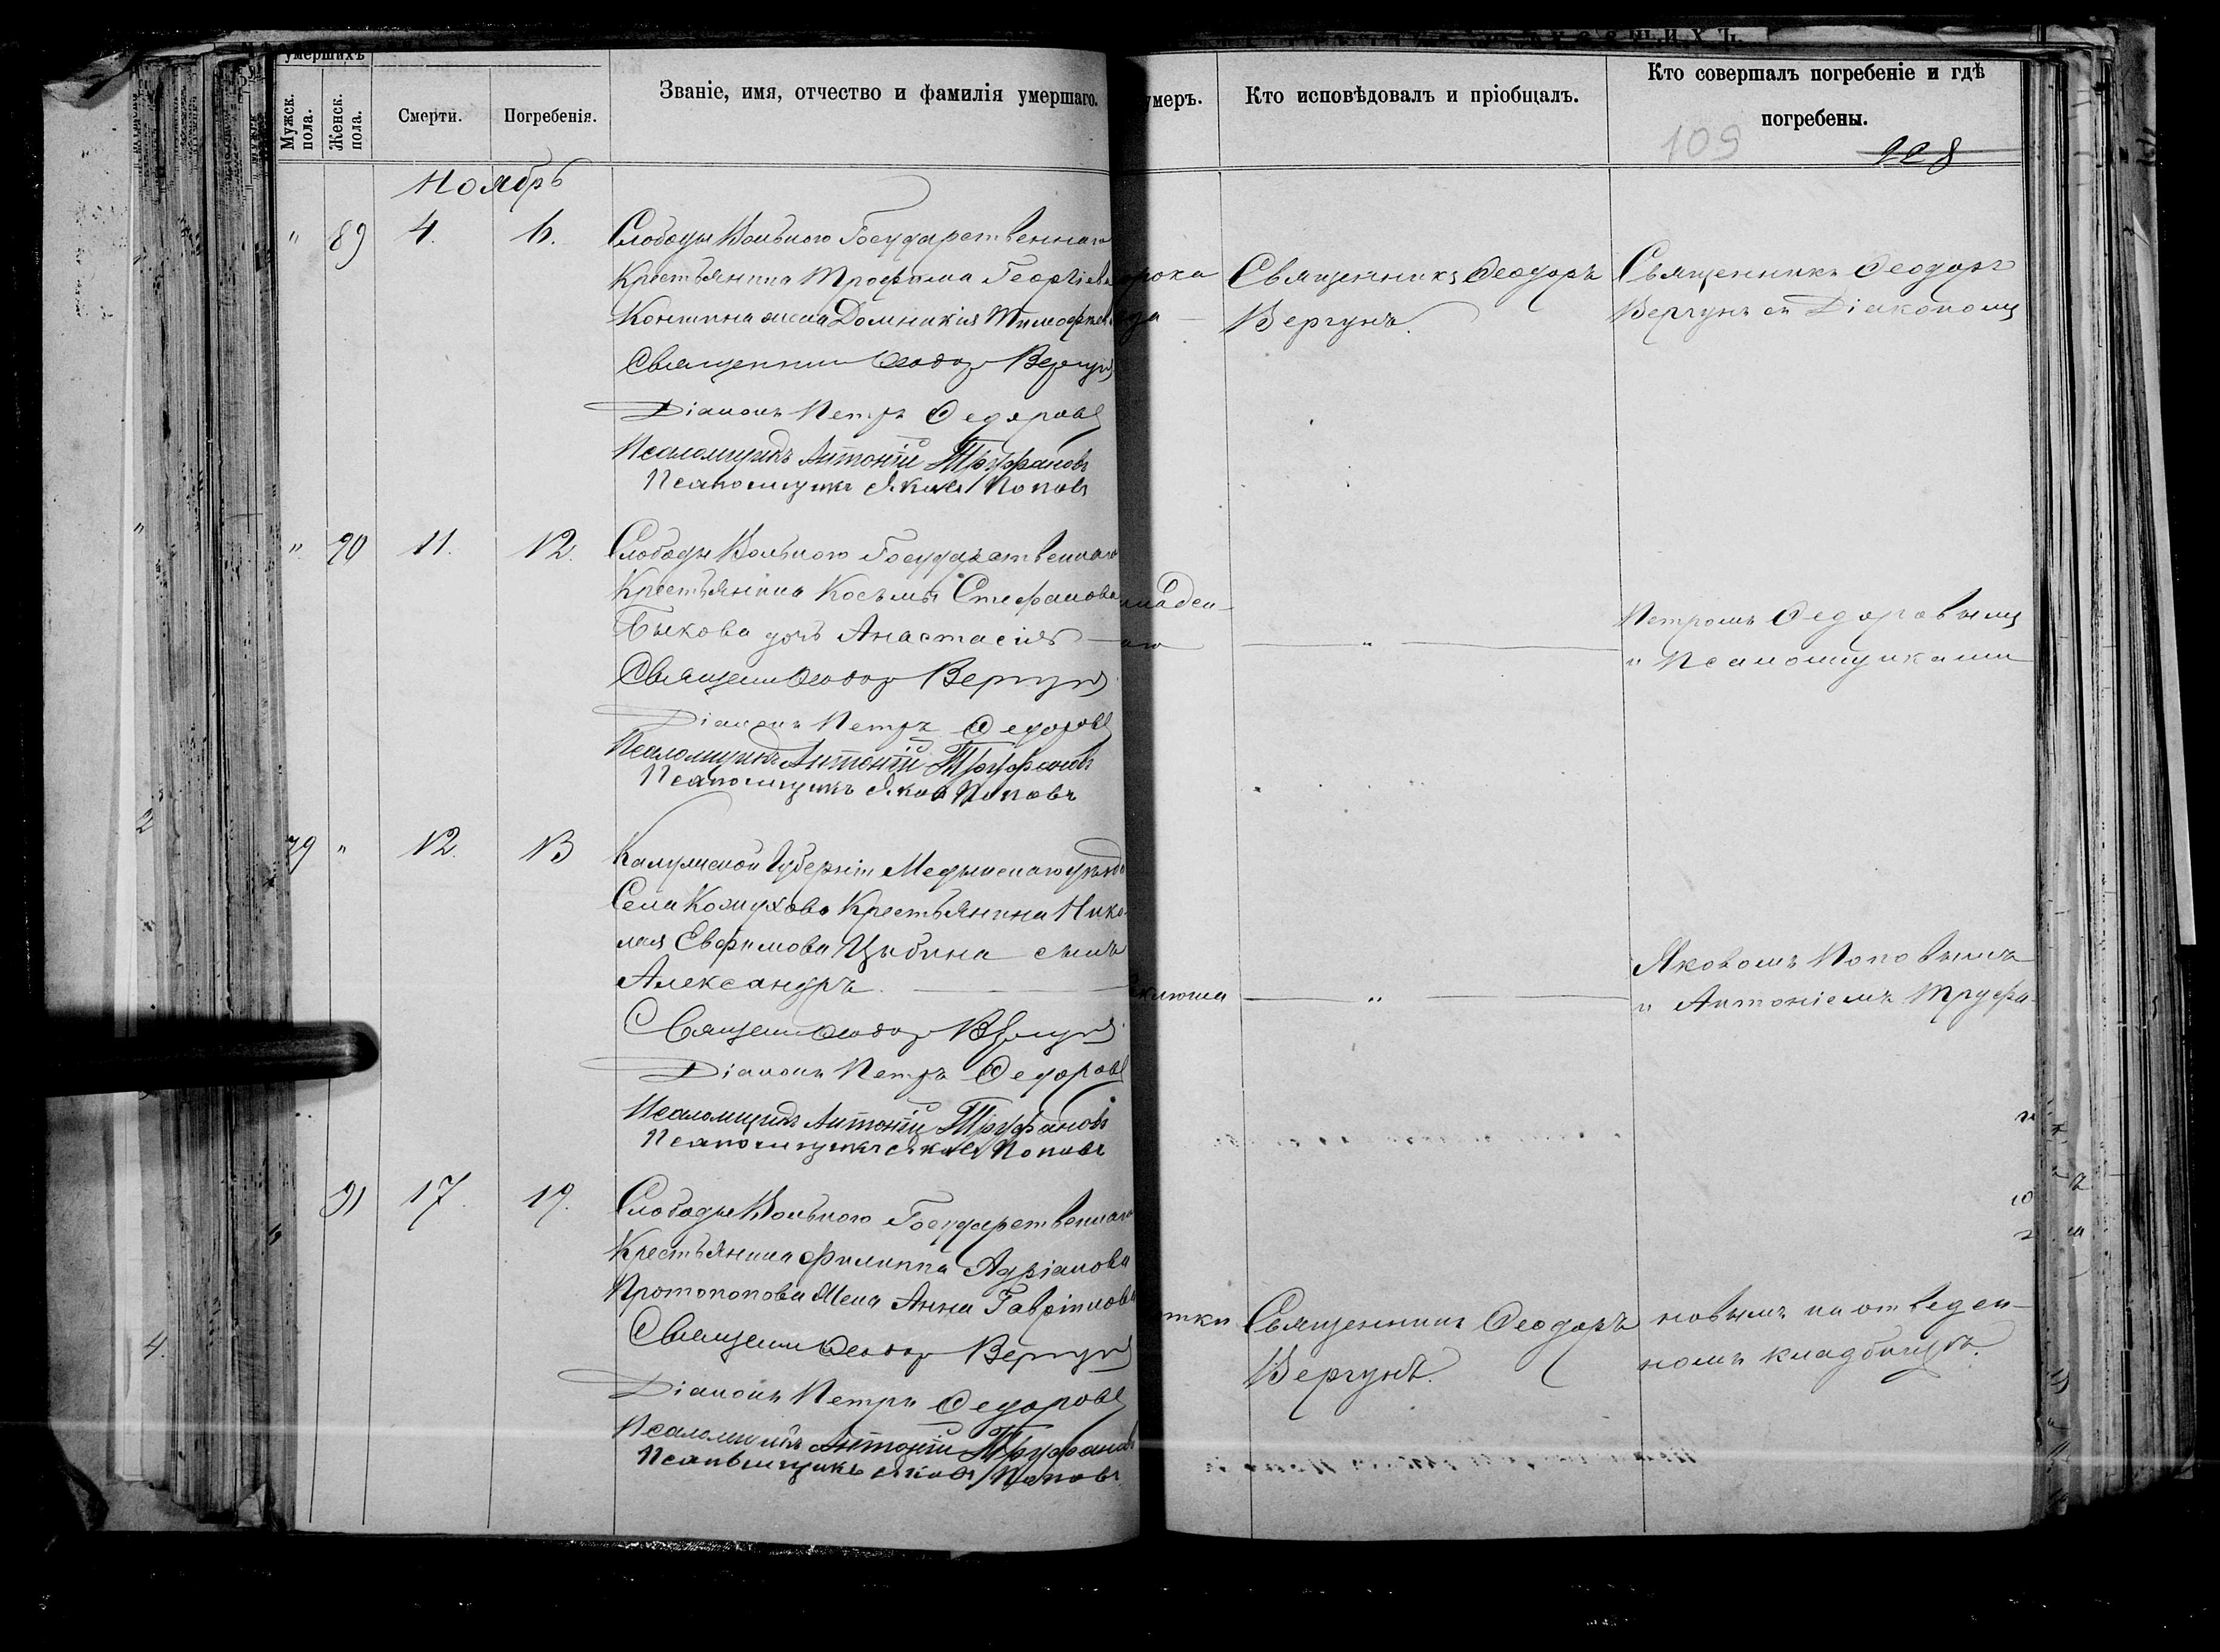 умершихъ
Мужск. пола.
Женск. пола.
Смерти.
Погребенія.
Званіе, имя, отчество и фамилія умершаго.
умеръ.
Кто исповѣдовалъ и пріобщалъ.
Кто совершалъ погребеніе и гдѣ
погребены.
109
Ноябрь
" 89 4. 6.
Слободы Вольного Государственнаго
Крестьянина Трофима Георгіева
жена Домникія Тимофеев
Священник Феодор Вергун
Діаконъ Петръ Федоровъ
Псаломщикъ Антоній Труфановъ
Псаломщикъ Яковъ Поповъ
Священникъ Феодоръ
Вергунъ.
Священникъ Феодоръ
Вергунъ съ Діакономъ
" 90 11. 12.
Слободы Вольного Государственнаго
Крестьянина Косьмы Стефанова
Быкова дочь Анастасія
Священник Феодор Вергун
Діаконъ Петръ Федоровъ
Псаломщикъ Антоній Труфановъ
Псаломщикъ Яковъ Поповъ
"
Петромъ Федоровымъ
и Псаломщиками
79 " 12. 13
Калужской Губерніи Медынскаго уѣзда
Села Кожухово Крестьянина Нико
лая Евфимова Цыбина сынъ
Александръ.
Священник Феодор Вергун
Діаконъ Петръ Федоровъ
Псаломщикъ Антоній Труфановъ
Псаломщикъ Яковъ Поповъ
"
Яковомъ Поповымъ
и Антоніемъ Труфа-
91 17. 19.
Слободы Вольного Государственнаго
Крестьянина Филиппа Адріанова
Протопопова жена Анна Гавріилова
Священник Феодор Вергун
Діаконъ Петръ Федоровъ
Псаломщикъ Антоній Труфановъ
Псаломщикъ Яковъ Поповъ
Священникъ Феодоръ
Вергунъ.
новымъ на отведен-
номъ кладбищѣ.